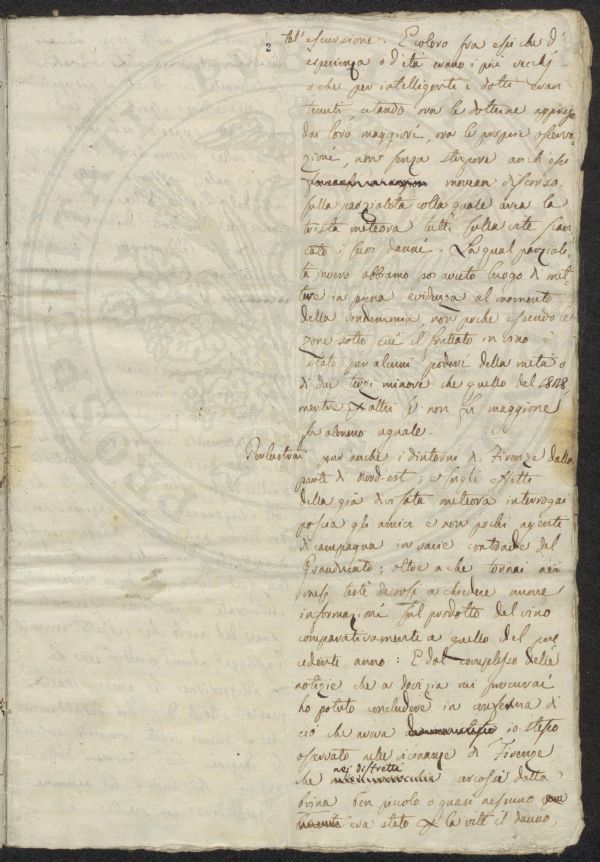 2
tal' escursione. E coloro fra essi che d'
esperienza o d'età erano i più vecchj
o che per intelligente e dotti eran
tenuti, citando ora le dottrine apprese
dai loro maggiori, ora le proprie osserva-
zioni, non senza stupore anch' essi
movean discorso
sulla parzialità colla quale avea la
trista meteora tutti sulla vite scari-
cato i suoi danni. La qual parziali-
tà invero abbiamo poi avuto luogo di met-
tere in piena evidenza al momento
della vendemmia, non poche essendo le
zone sotto cui il fruttato in vino è
stato per alcuni poderi della metà o
di due terzi minore che quello del 1828
mentre x altri se non fu maggiore
fu almeno uguale.
Perlustrai pur anche i dintorni di Firenze dalla
parte di Nord-est; e sugli effetti
della già divisata meteora interrogai
poscia gli amici e non pochi agenti
di campagna in varie contrade del
Granducato; oltre a che tornai nei
mesi testè decorsi a chiedere nuove
informazioni sul prodotto del vino
comparativamente a quello del pre-
cedente anno: E dal complesso delle
notizie che a dovizia mi procurai
ho potuto concludere in conferma di
ciò che aveva io stesso
osservato nelle vicinanze di Firenze
che nei distretti percossi dalla
brina ben piccolo o quasi nessuno
era stato x la vite il danno,